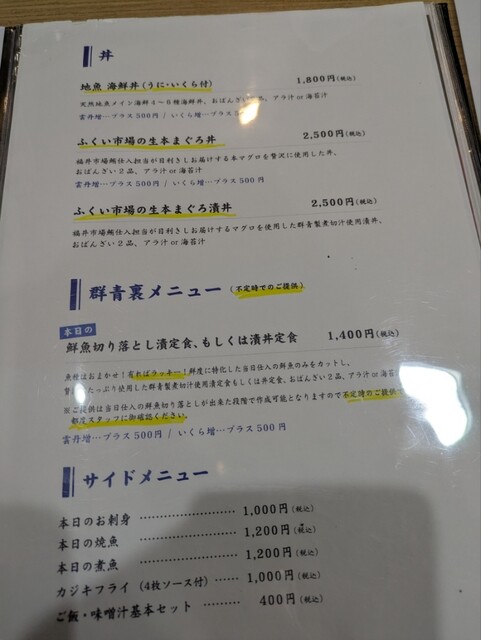 丼
地魚 海鮮丼（うに・いくら付） 1,800円（税込）
天然地魚メイン海鮮４〜６種海鮮丼、おばんざい 品、アラ汁 or 海苔汁
雲丹増…プラス500円 / いくら増…プラス5
ふくい市場の生本まぐろ丼 2,500円（税込）
福井市場鯛仕入担当が目利きしお届けする本マグロを贅沢に使用した丼。
おばんざい２品、アラ汁 or 海苔汁
雲丹増…プラス500円 / いくら増…プラス500円
ふくい市場の生本まぐろ漬丼 2,500円（税込）
福井市場鯛仕入担当が目利きしお届けするマグロを使用した群青製煮切汁使用漬丼。
おばんざい２品、アラ汁 or 海苔汁
群青裏メニュー（不定時でのご提供）
本日の
鮮魚切り落とし漬定食、もしくは漬丼定食 1,400円（税込）
魚種はおまかせ！有ればラッキー！鮮度に特化した当日仕入の鮮魚のみをカットし、
たっぷり使用した群青製煮切汁使用漬定食もしくは丼定食。おばんざい２品、アラ汁 or 海苔
※ご提供は当日仕入の鮮魚切り落としが出来た段階で作成可能となりますので不定時のご提供
都度スタッフに御確認ください。
雲丹増…プラス500円 / いくら増…プラス500円
サイドメニュー
本日のお刺身 ……………… 1,000円（税込）
本日の焼魚 ……………… 1,200円（税込）
本日の煮魚 ……………… 1,200円（税込）
カジキフライ（4枚ソース付）…… 1,000円（税込）
ご飯・味噌汁基本セット ……… 400円（税込）